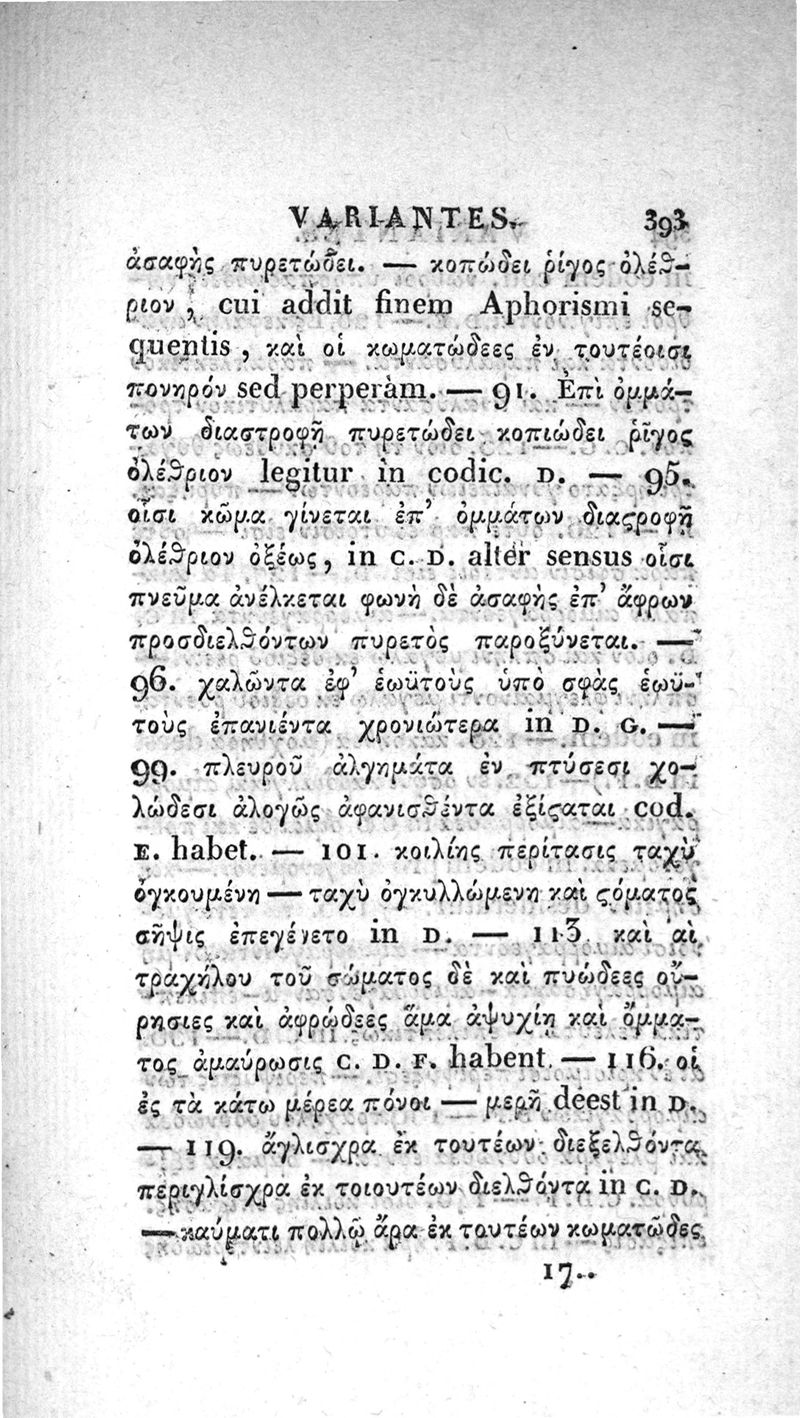 VARIANTES. 393
ἀσαφὴς πυρετώδει. — κοπώδει ῥίγος ὀλέθ-
ριον, cui addit finem Aphorismi se-
quentis, καὶ οἱ κωματώδεες ἐν τουτέοισι
πονηρόν sed perperàm. — 91. Ἐπὶ ὀμμά-
των διαστροφῇ πυρετώδει κοπιώδει ῥῖγος
ὀλέθριον legitur in codic. D. — 95.
οἷσι κῶμα γίνεται ἐπ' ὀμμάτων διαςροφῇ
ὀλέθριον ὀξέως, in C. D. alter sensus οἷσι
πνεῦμα ἀνέλκεται φωνὴ δὲ ἀσαφὴς ἐπ' ἄφρων
προσδιελθόντων πυρετὸς παροξύνεται. —
96. χαλῶντα ἐφ' ἑωϋτοὺς ὑπὸ σφὰς ἑωϋ-
τοὺς ἐπανιέντα χρονιώτερα in D. G. —
99. πλευροῦ ἀλγημάτα ἐν πτύσεσι χο-
λώδεσι ἀλογῶς ἀφανισθέντα ἐξίςαται cod.
E. habet. — 101. κοιλίης περίτασις ταχὺ
ὀγκουμένη — ταχὺ ὀγκυλλώμενη καὶ ςόματος
σῆψις ἐπεγένετο in D. — 113 καὶ αἱ
τραχήλου τοῦ σώματος δὲ καὶ πυώδεες οὔ-
ρησιες καὶ ἀφρώδεες ἅμα ἀψυχίῃ καὶ ὄμμα-
τος ἀμαύρωσις C. D. F. habent. — 116. οἱ
ἐς τὰ κάτω μέρεα πόνοι — μερῆ deest in D.
— 119. ἄγλισχρα ἐκ τουτέων διεξελθόντα
περιγλίσχρα ἐκ τοιουτέων διελθόντα in C. D.
— καύματι πολλῷ ἄρα ἐκ τουτέων κωματῶδες
17..